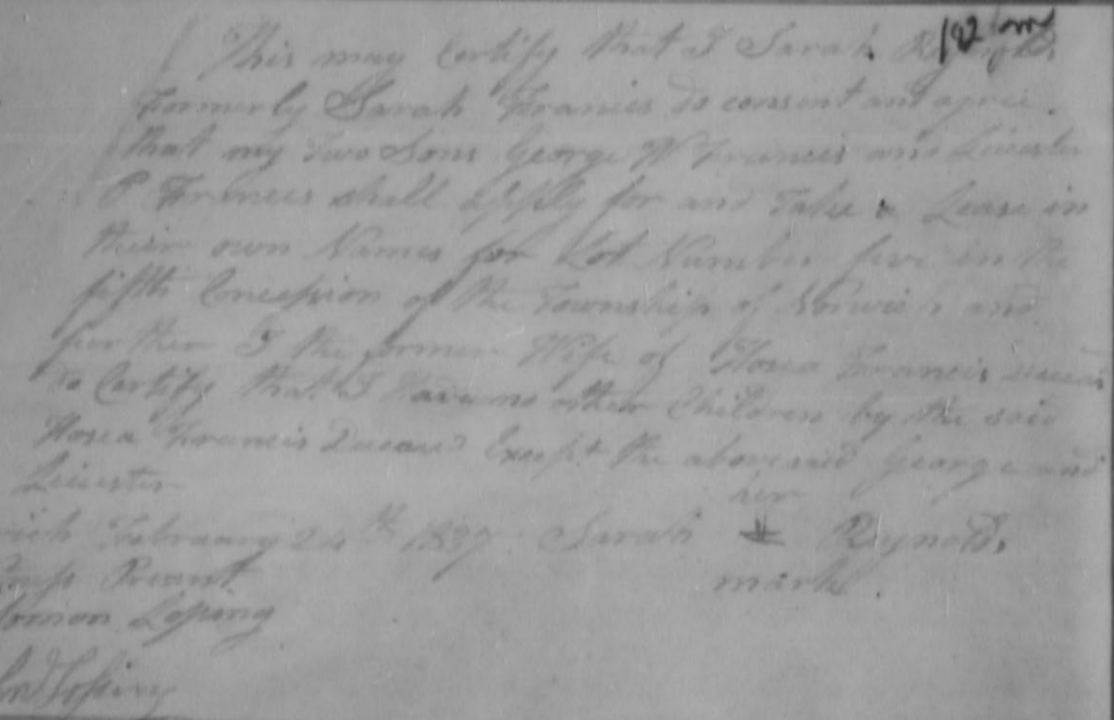 This may Certify that I Sarah Reynolds
Formerly Sarah Francis do consent and agree
that my Two Sons George W Francis and Leicester
P Francis shall apply for and Take a Lease in
their own Names for Lot Number five in the
fifth Concession of the Township of Norwich and
further I the former Wife of Hosea Francis
do Certify that I have no other Children by the said
Hosea Francis Deceased Except the above said George and
Leicester
February 24th 1837 Sarah her Reynolds
mark
Present
Losing
Losing